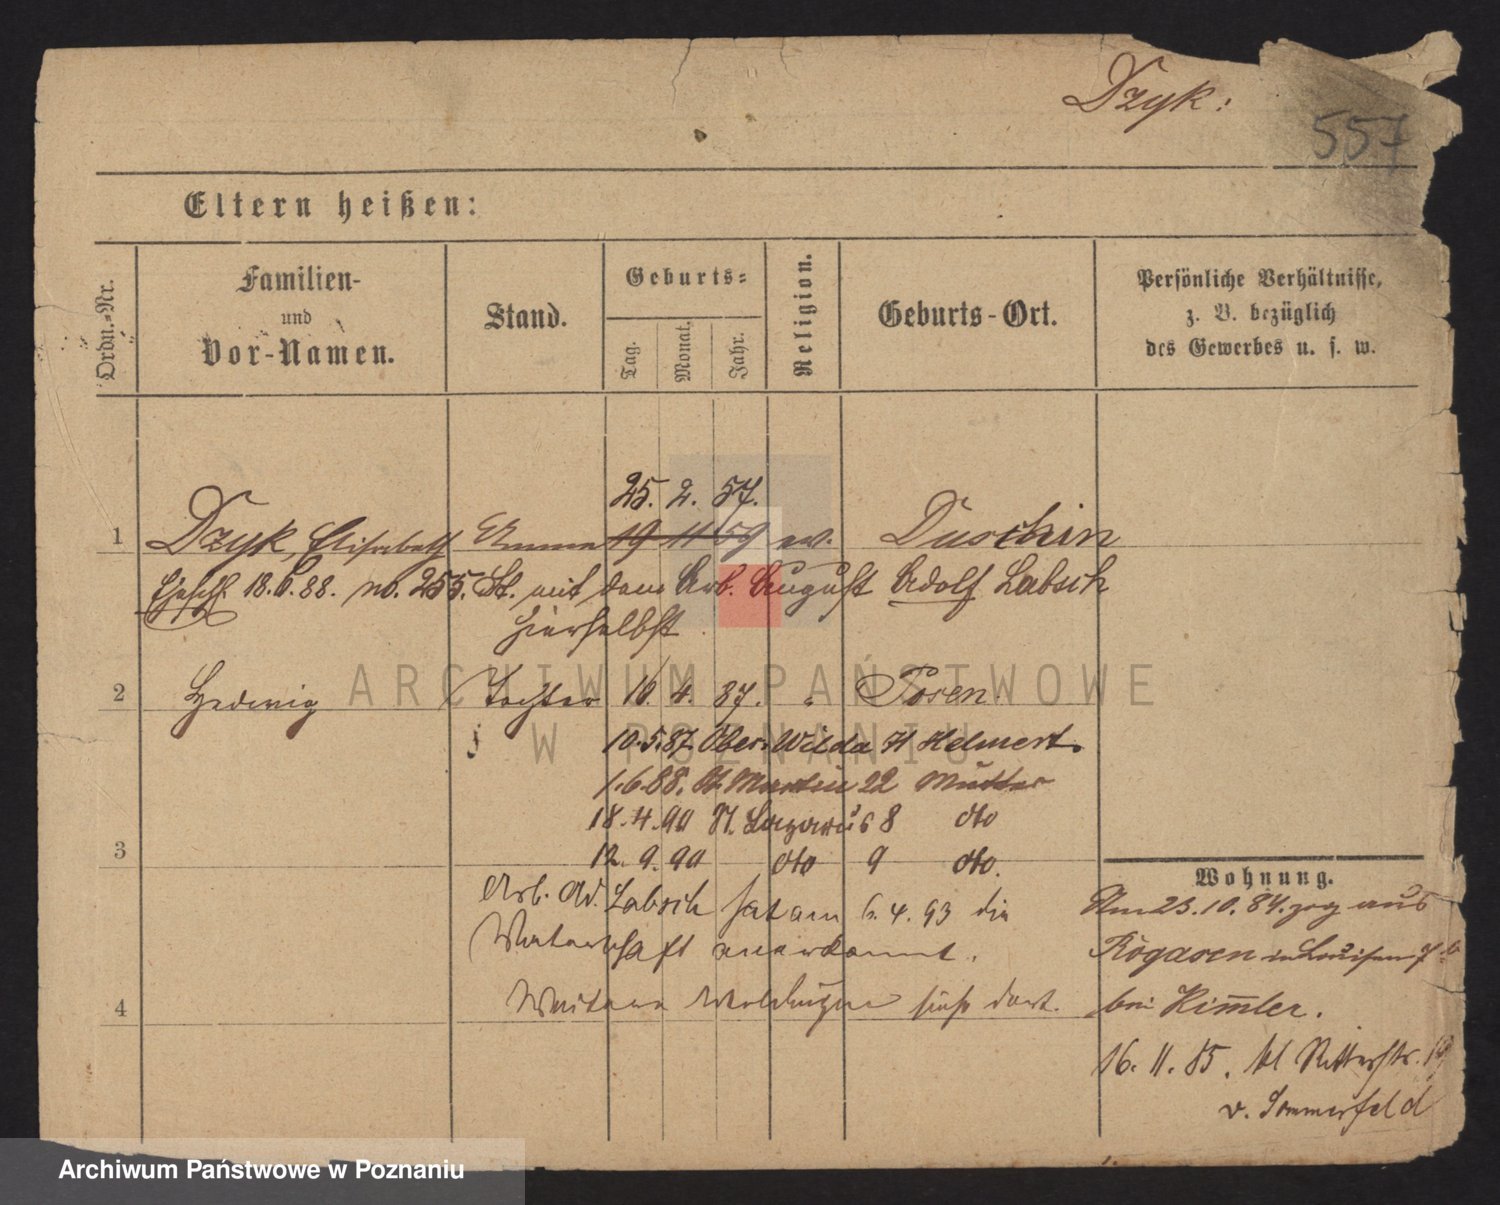 Dzyk:
557
Eltern heißen:
Ordn.-Nr.
Familien-
und
Vor-Namen.
Stand.
Geburts-
Tag.
Monat.
Jahr.
Religion.
Geburts-Ort.
Persönliche Verhältnisse,
z. B. bezüglich
des Gewerbes u. s. w.
25. 2. 57.
1 Dzyk, Elisabeth Amme 19 11 59 ev. Duschin
Ehesch. 18.6.88. no. 255. St. mit dem Arb. August Adolf Labsch
hierselbst
ARCHIWUM PAŃSTWOWE
W POZNANIU
2 Hedwig Tochter 16. 4. 87. " Posen
10.5.87. Ober Wilda 4 Helmert.
1.6.88. St. Martin 22 Mutter
18.4.90 St. Lazarus 8 dto
3 12.9.90 dto 9 dto.
Arb. Ad. Labsch hat am 6.4.93 die
Vaterschaft anerkannt.
4 Weitere Meldungen siehe dort.
Wohnung.
Am 23.10.84. zog aus
Rogasen in Louisenstr.
bei Kimler.
16.11.85. Kl Ritterstr.
v. Sommerfeld
Archiwum Państwowe w Poznaniu